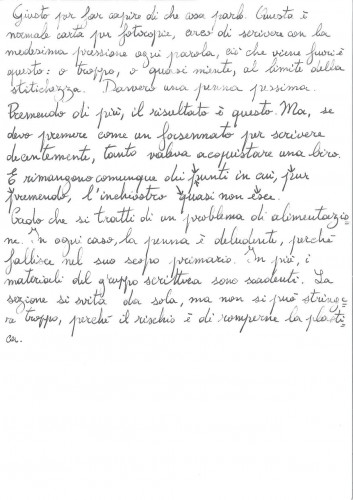 Giusto per far capire di che cosa parlo. Questa è
normale carta per fotocopie, cerco di scrivere con la
medesima pressione ogni parola, ciò che viene fuori è
questo: o troppo, o quasi niente, al limite della
stitichezza. Davvero una penna pessima.
Premendo di più, il risultato è questo. Ma, se
devo premere come un forsennato per scrivere
decentemente, tanto valeva acquistare una biro.
E rimangono comunque dei punti in cui, pur
premendo, l'inchiostro quasi non esce.
Credo che si tratti di un problema di alimentazio-
ne. In ogni caso, la penna è deludente, perché
fallisce nel suo scopo primario. In più, i
materiali del gruppo scrittura sono scadenti. La
sezione si svita da sola, ma non si può stringe-
re troppo, perché il rischio è di romperne la plasti-
ca.